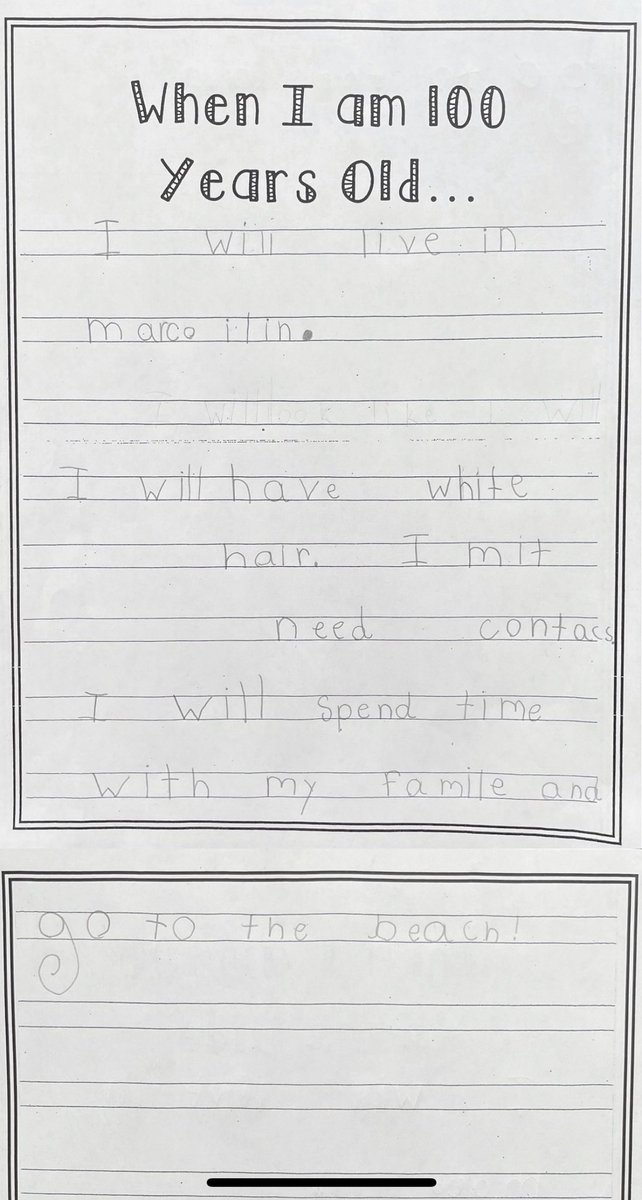 When I am 100
Years Old...
I will live in
marco ilin.
I will look like I will
I will have white
hair. I mit
need contacs
I will spend time
with my famile and
go to the beach!